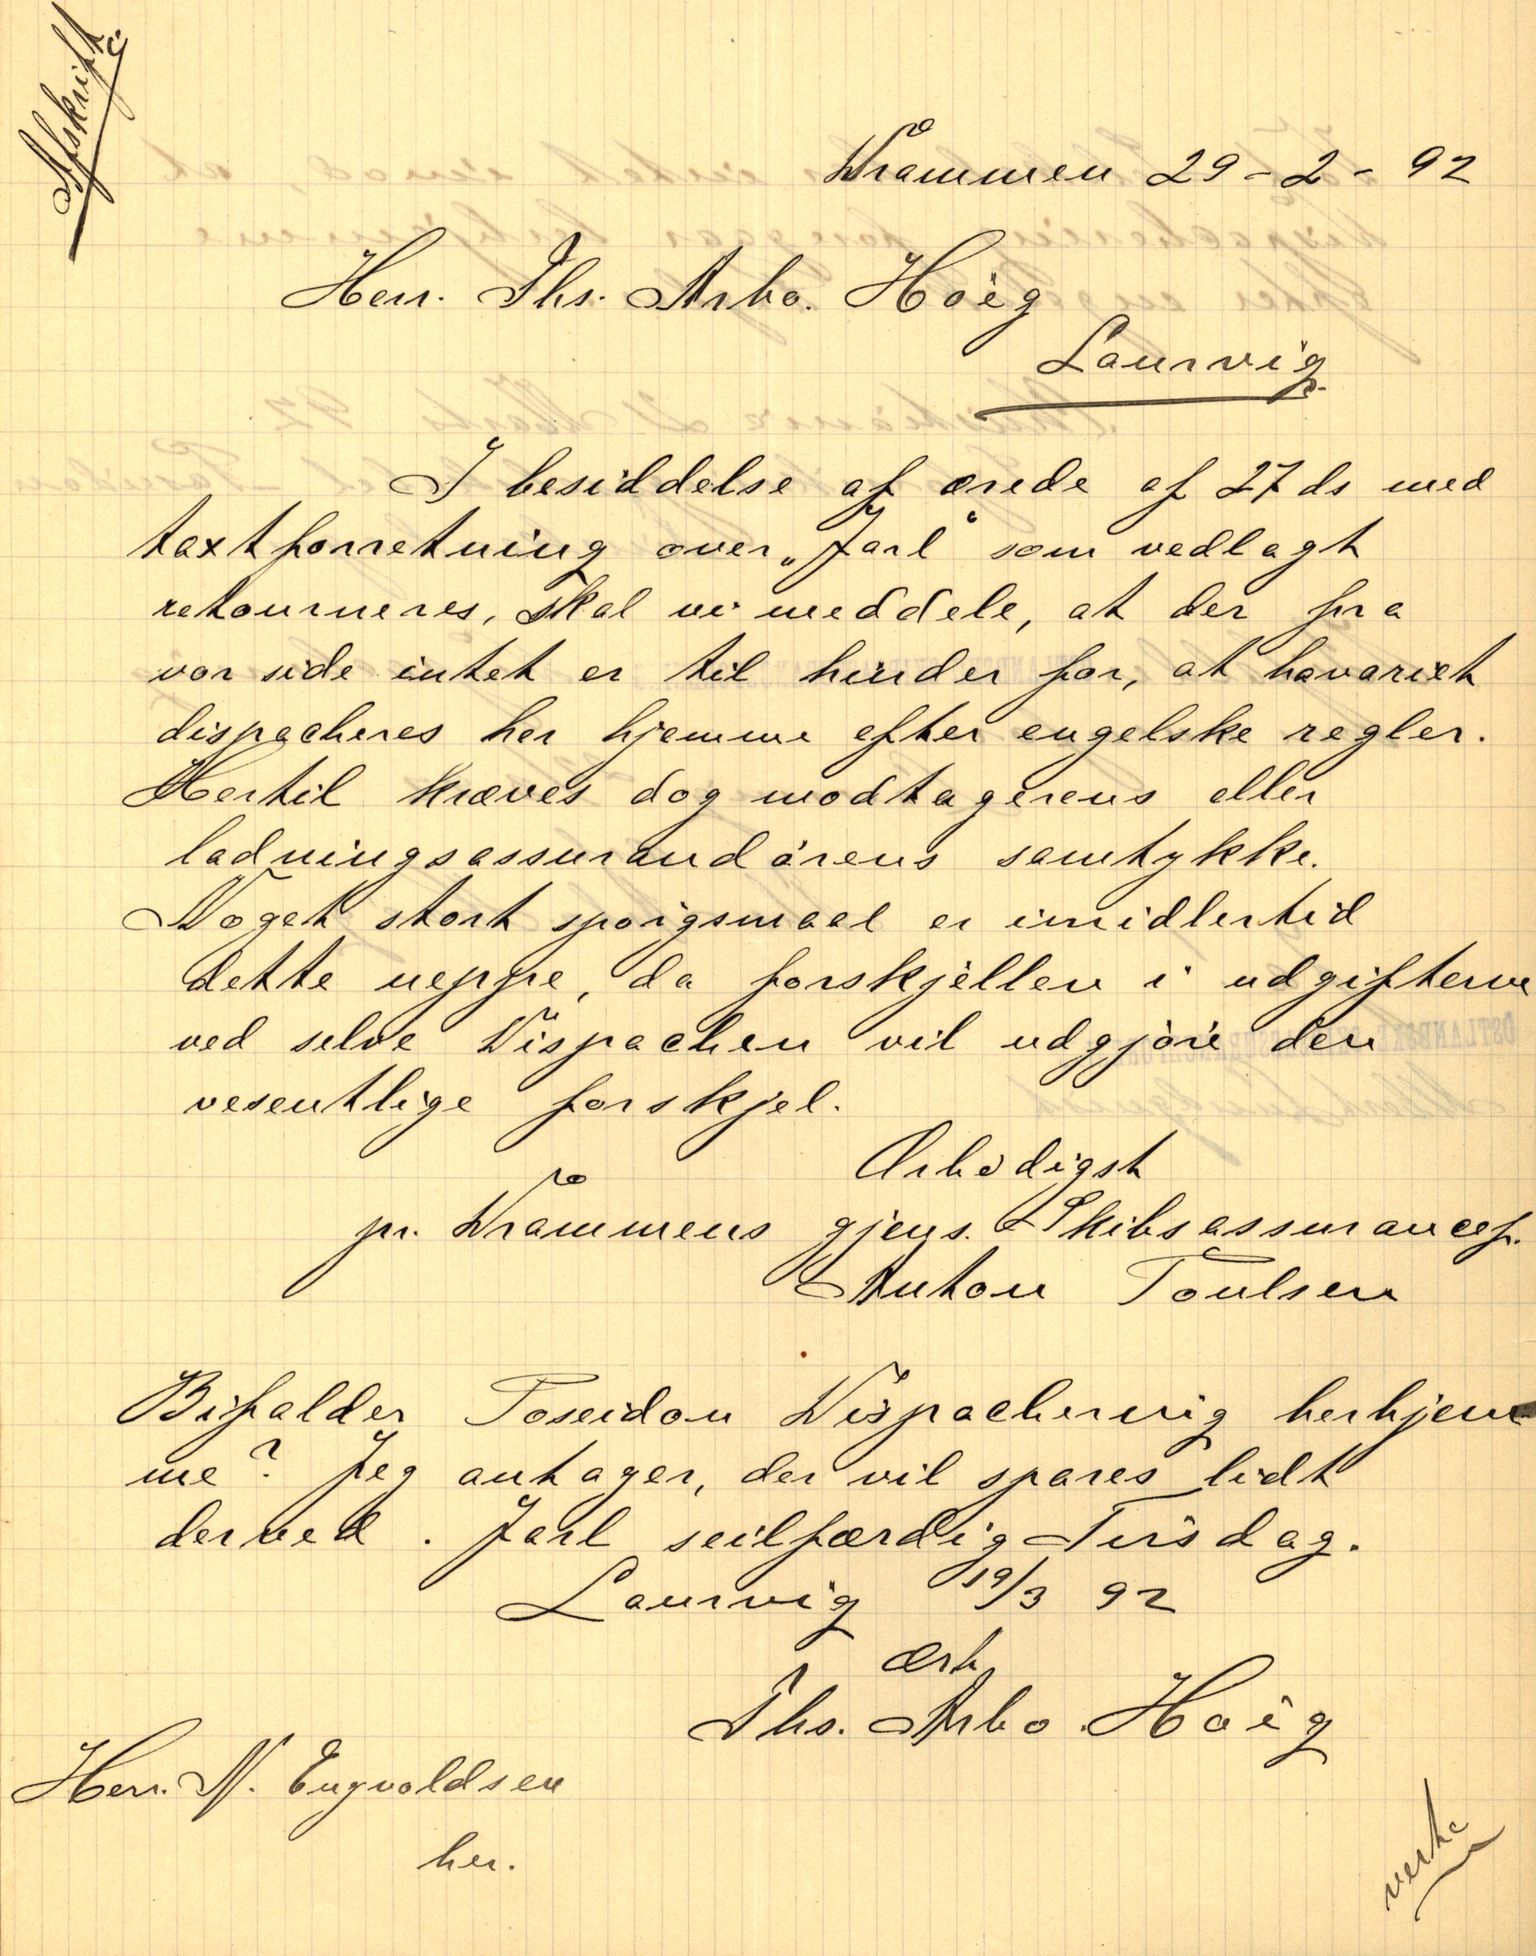 Afskrift.
Drammen 29-2-92
Herr. Ths. Arbo. Höeg
Laurvig.
I besiddelse af ærede af 27 ds med
taxtforretning over „Jarl“ som vedlagt
retourneres, skal vi meddele, at der fra
vor side intet er til hinder for, at havariet
dispacheres her hjemme efter engelske regler.
Hertil kræves dog modtagerens eller
ladningsassurandörens samtykke.
Noget stort spörgsmaal er imidlertid
dette neppe, da forskjellen i udgifterne
ved selve Dispachen vil udgjöre den
vesentlige forskjel.
Ærbödigst
pr. Drammens gjens. Skibsassurancef.
Anton Poulsen
Bifalder Poseidon Dispachering herhjem
me? Jeg antager, der vil spares lidt
derved. Jarl seilfærdig Tirsdag.
Laurvig 19/3 92
Ærb.
Ths. Arbo. Höeg
Herr. N. Engvoldsen
her.